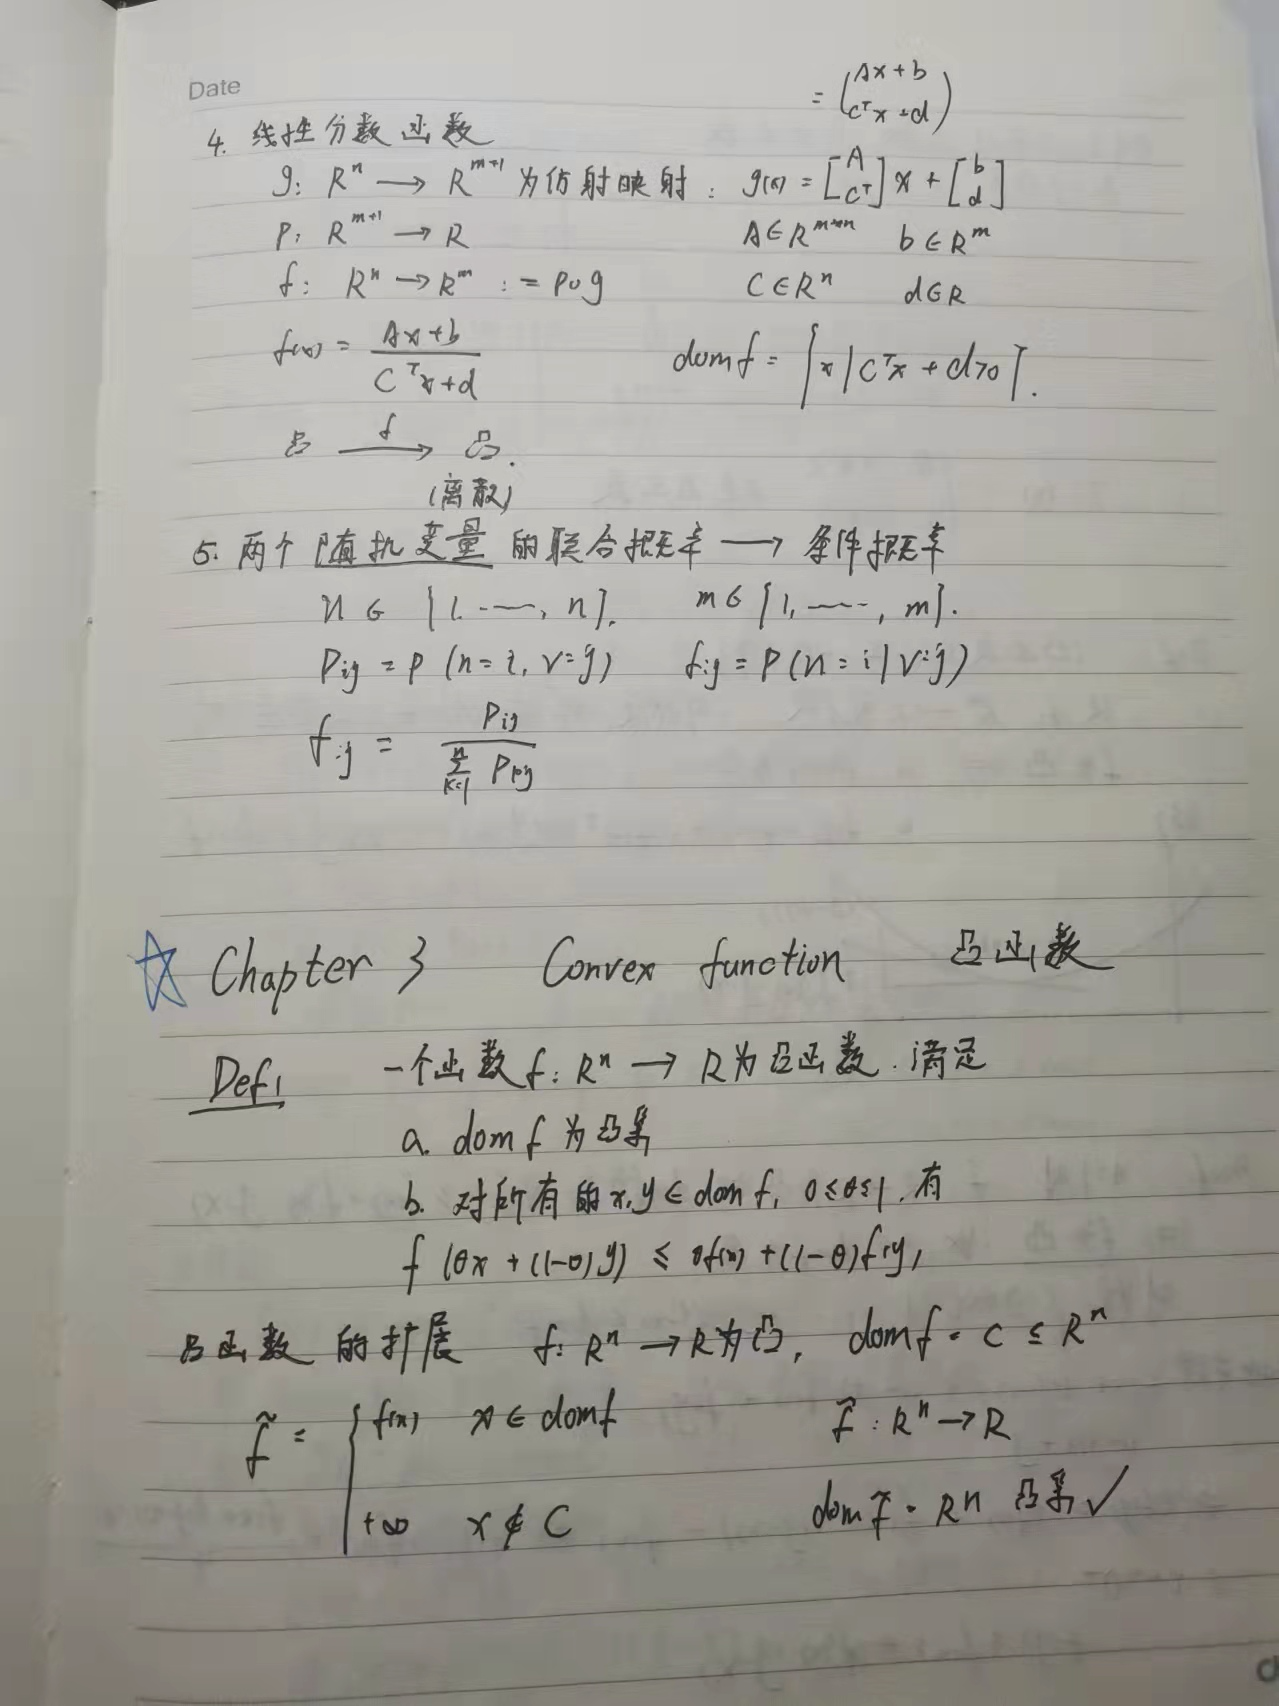 Date
= (Ax+b
CᵀX+d)
4. 线性分数函数
g: Rⁿ → Rᵐ⁺¹ 为仿射映射: g(x) = [A Cᵀ] x + [b d]
P: Rᵐ⁺¹ → R A∈Rᵐˣⁿ b∈Rᵐ
f: Rⁿ → Rᵐ := P∪g C∈Rⁿ d∈R
f(x) = (Ax+b)/(Cᵀx+d) dom f = {x | Cᵀx + d>0}.
凸 →f 凸.
(离散)
5. 两个随机变量的联合概率 → 条件概率
n ∈ {1. ……, n}. m∈ {1, ……, m}.
Pij = P (n=i, v=j) fij = P(n=i|v=j)
fij = Pij / Σⁿₖ₌₁ Pkj
☆ Chapter 3 Convex function 凸函数
Def1 一个函数 f: Rⁿ → R为凸函数. 满足
a. dom f 为凸集
b. 对所有的 x, y ∈ dom f, 0≤θ≤1, 有
f (θx + (1-θ)y) ≤ θf(x) + (1-θ)f(y)
凸函数 的扩展 f: Rⁿ → R为凸, dom f = C ⊆ Rⁿ
f̃ = { f(x) x∈ dom f f̃: Rⁿ → R
+∞ x∉C dom f̃ = Rⁿ 凸集 ✓